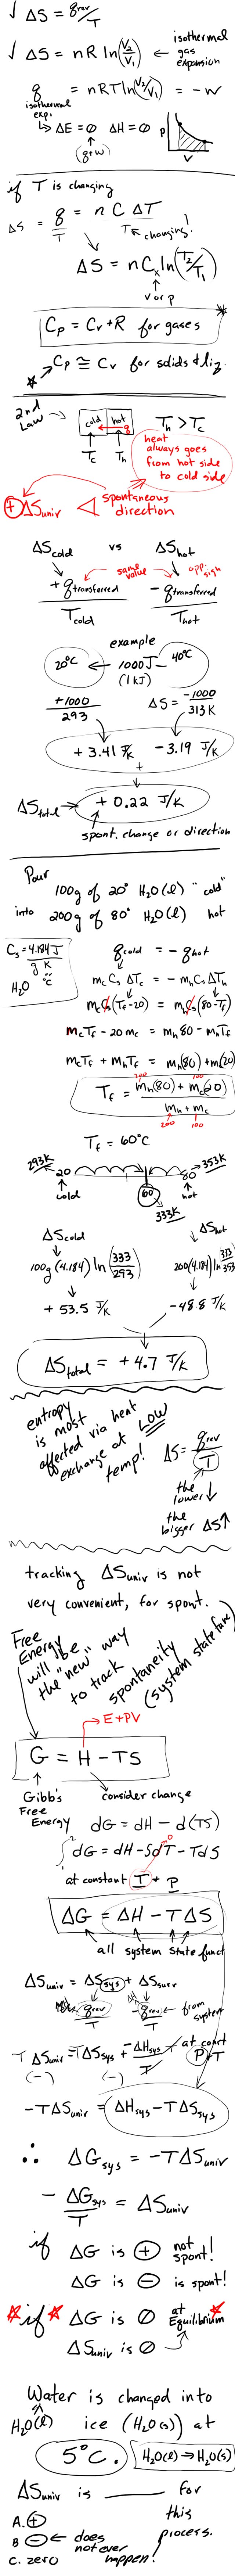 √ ΔS = qrev/T
√ ΔS = nR ln(V2/V1) ← isothermal gas expansion
q = nRT ln(V2/V1) = -w
isothermal exp.
↳ ΔE = 0 ΔH = 0
(q+w)
P
V
if T is changing
ΔS = q/T = n C ΔT
T ← changing!
ΔS = nCx ln(T2/T1)
V or P
Cp = Cv + R for gases *
Cp ≅ Cv for solids & liq.
2nd Law → cold hot q Th > Tc
Tc Th
heat always goes from hot side to cold side
+ ΔSuniv spontaneous direction
ΔScold vs ΔShot
+ qtransferred same value opp. sign - qtransferred
Tcold Thot
example
20°C ← 1000J - 40°C
(1 kJ)
+1000/293 ΔS = -1000/313K
+ 3.41 J/K - 3.19 J/K
+
ΔStotal → + 0.22 J/K
spont. change or direction
Pour
100g of 20° H2O(l) "cold"
into 200g of 80° H2O(l) hot
Cs = 4.184 J
g K
H2O °C
qcold = - qhot
mc Cs ΔTc = - mh Cs ΔTh
mc Cs (Tf - 20) = mh Cs (80 - Tf)
mcTf - 20 mc = mh 80 - mhTf
mcTf + mhTf = mh(80) + mc(20)
200 100
Tf = mh(80) + mc(20)
mh + mc
200 100
Tf = 60°C
293K 20 80 353K
cold 60 hot
333K
ΔScold ΔShot
100g (4.184) ln(333/293) 200(4.184) ln 333/353
+ 53.5 J/K - 48.8 J/K
ΔStotal = + 4.7 J/K
entropy is most affected via heat exchange at LOW temp!
ΔS = qrev
T
the lower ↓
the bigger ΔS↑
tracking ΔSuniv is not
very convenient, for spont.
Free Energy will be the "new" way to track spontaneity (system state func)
→ E + PV
G = H - TS
Gibb's Free Energy
consider change
dG = dH - d(TS)
∫² dG = dH - SdT⁰ - TdS
at constant T + P
ΔG = ΔH - TΔS
all system state funct
ΔSuniv = ΔSsys + ΔSsurr
qrev/T -qrev/T ← from system
T ΔSuniv = TΔSsys + -ΔHsys T/T at const P + T
(-) (-)
-TΔSuniv = ΔHsys - TΔSsys
∴ ΔGsys = -TΔSuniv
- ΔGsys/T = ΔSuniv
if ΔG is + not spont!
ΔG is - is spont!
*if* ΔG is 0 at Equilibrium *
ΔSuniv is 0
Water is changed into
H2O(l) ice (H2O(s)) at
5°C. H2O(l) → H2O(s)
ΔSuniv is ____ for
this process.
A. +
B - ← does not ever happen!
C. zero